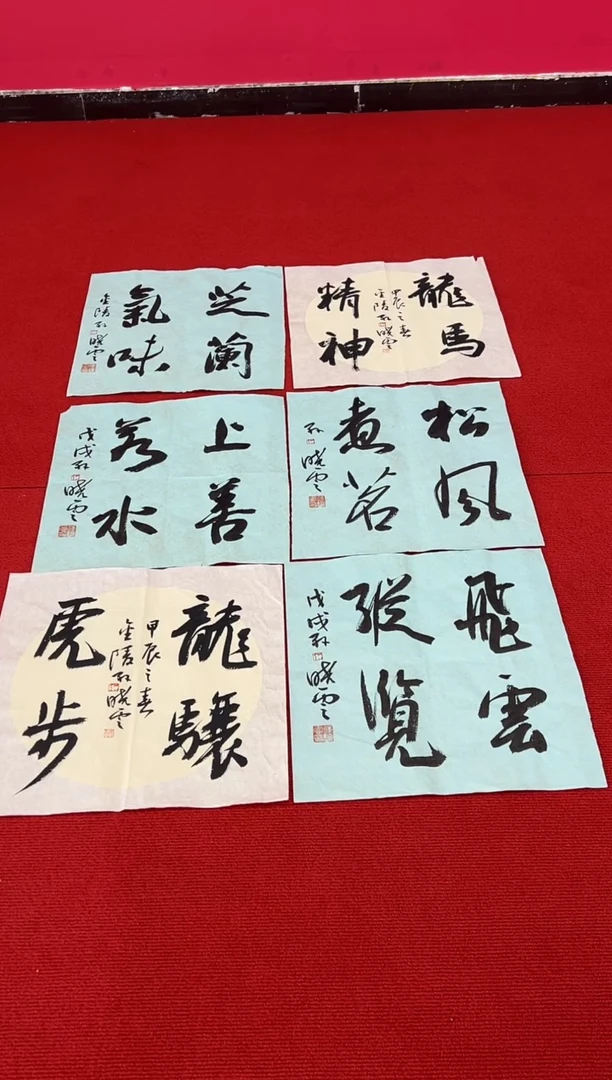 芝蘭
氣味
金陵孫曉雲
龍馬
精神
甲辰之春
金陵孫曉雲
上善
若水
戊戌孫曉雲
松風
煮茗
孫曉雲
龍驤
虎步
甲辰之春
金陵孫曉雲
飛雲
縱覽
戊戌孫曉雲